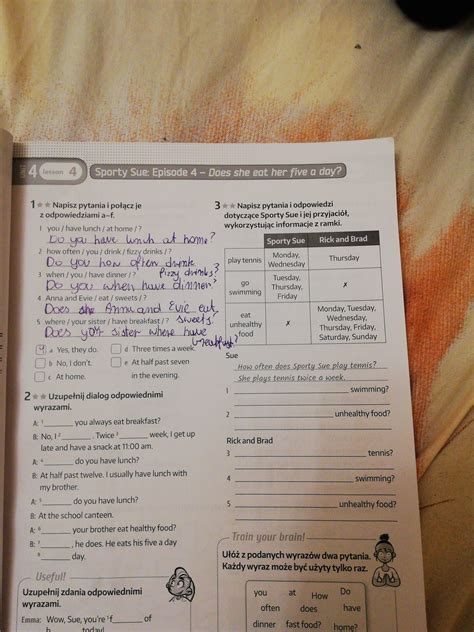 4 lesson 4 Sporty Sue: Episode 4 – Does she eat her five a day?
1 ★★ Napisz pytania i połącz je
z odpowiedziami a–f.
1 you / have lunch / at home / ?
Do you have lunch at home?
2 how often / you / drink / fizzy drinks / ?
Do you how often drink
fizzy drinks?
3 when / you / have dinner / ?
Do you when have dinner?
4 Anna and Evie / eat / sweets / ?
Does she Anna and Evie eat
sweets?
5 where / your sister / have breakfast / ?
Does your sister where have
breakfast?
4 a Yes, they do.
b No, I don't.
c At home.
d Three times a week.
e At half past seven
in the evening.
2 ★★ Uzupełnij dialog odpowiednimi
wyrazami.
A: 1 you always eat breakfast?
B: No, I 2 . Twice 3 week, I get up
late and have a snack at 11:00 am.
A: 4 do you have lunch?
B: At half past twelve. I usually have lunch with
my brother.
A: 5 do you have lunch?
B: At the school canteen.
A: 6 your brother eat healthy food?
B: 7 , he does. He eats his five a day
8 day.
Useful!
Uzupełnij zdania odpowiednimi
wyrazami.
Emma: Wow, Sue, you're 1f of
today!
3 ★★ Napisz pytania i odpowiedzi
dotyczące Sporty Sue i jej przyjaciół,
wykorzystując informacje z ramki.
Sporty Sue Rick and Brad
play tennis Monday, Wednesday Thursday
go swimming Tuesday, Thursday, Friday ✗
eat unhealthy food ✗ Monday, Tuesday, Wednesday, Thursday, Friday, Saturday, Sunday
Sue
How often does Sporty Sue play tennis?
She plays tennis twice a week.
1 swimming?
2 unhealthy food?
Rick and Brad
3 tennis?
4 swimming?
5 unhealthy food?
Train your brain!
Ułóż z podanych wyrazów dwa pytania.
Każdy wyraz może być użyty tylko raz.
you at How Do
often does have
dinner fast food? home?